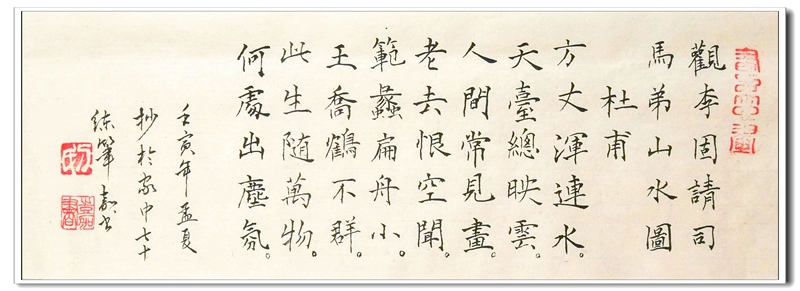 觀李固請司
馬弟山水圖
杜甫
方丈渾連水。
天臺總映雲。
人間常見畫。
老去恨空聞。
範蠡扁舟小。
王喬鶴不群。
此生隨萬物。
何處出塵氛。
壬寅年孟夏
抄於家中七十
练筆